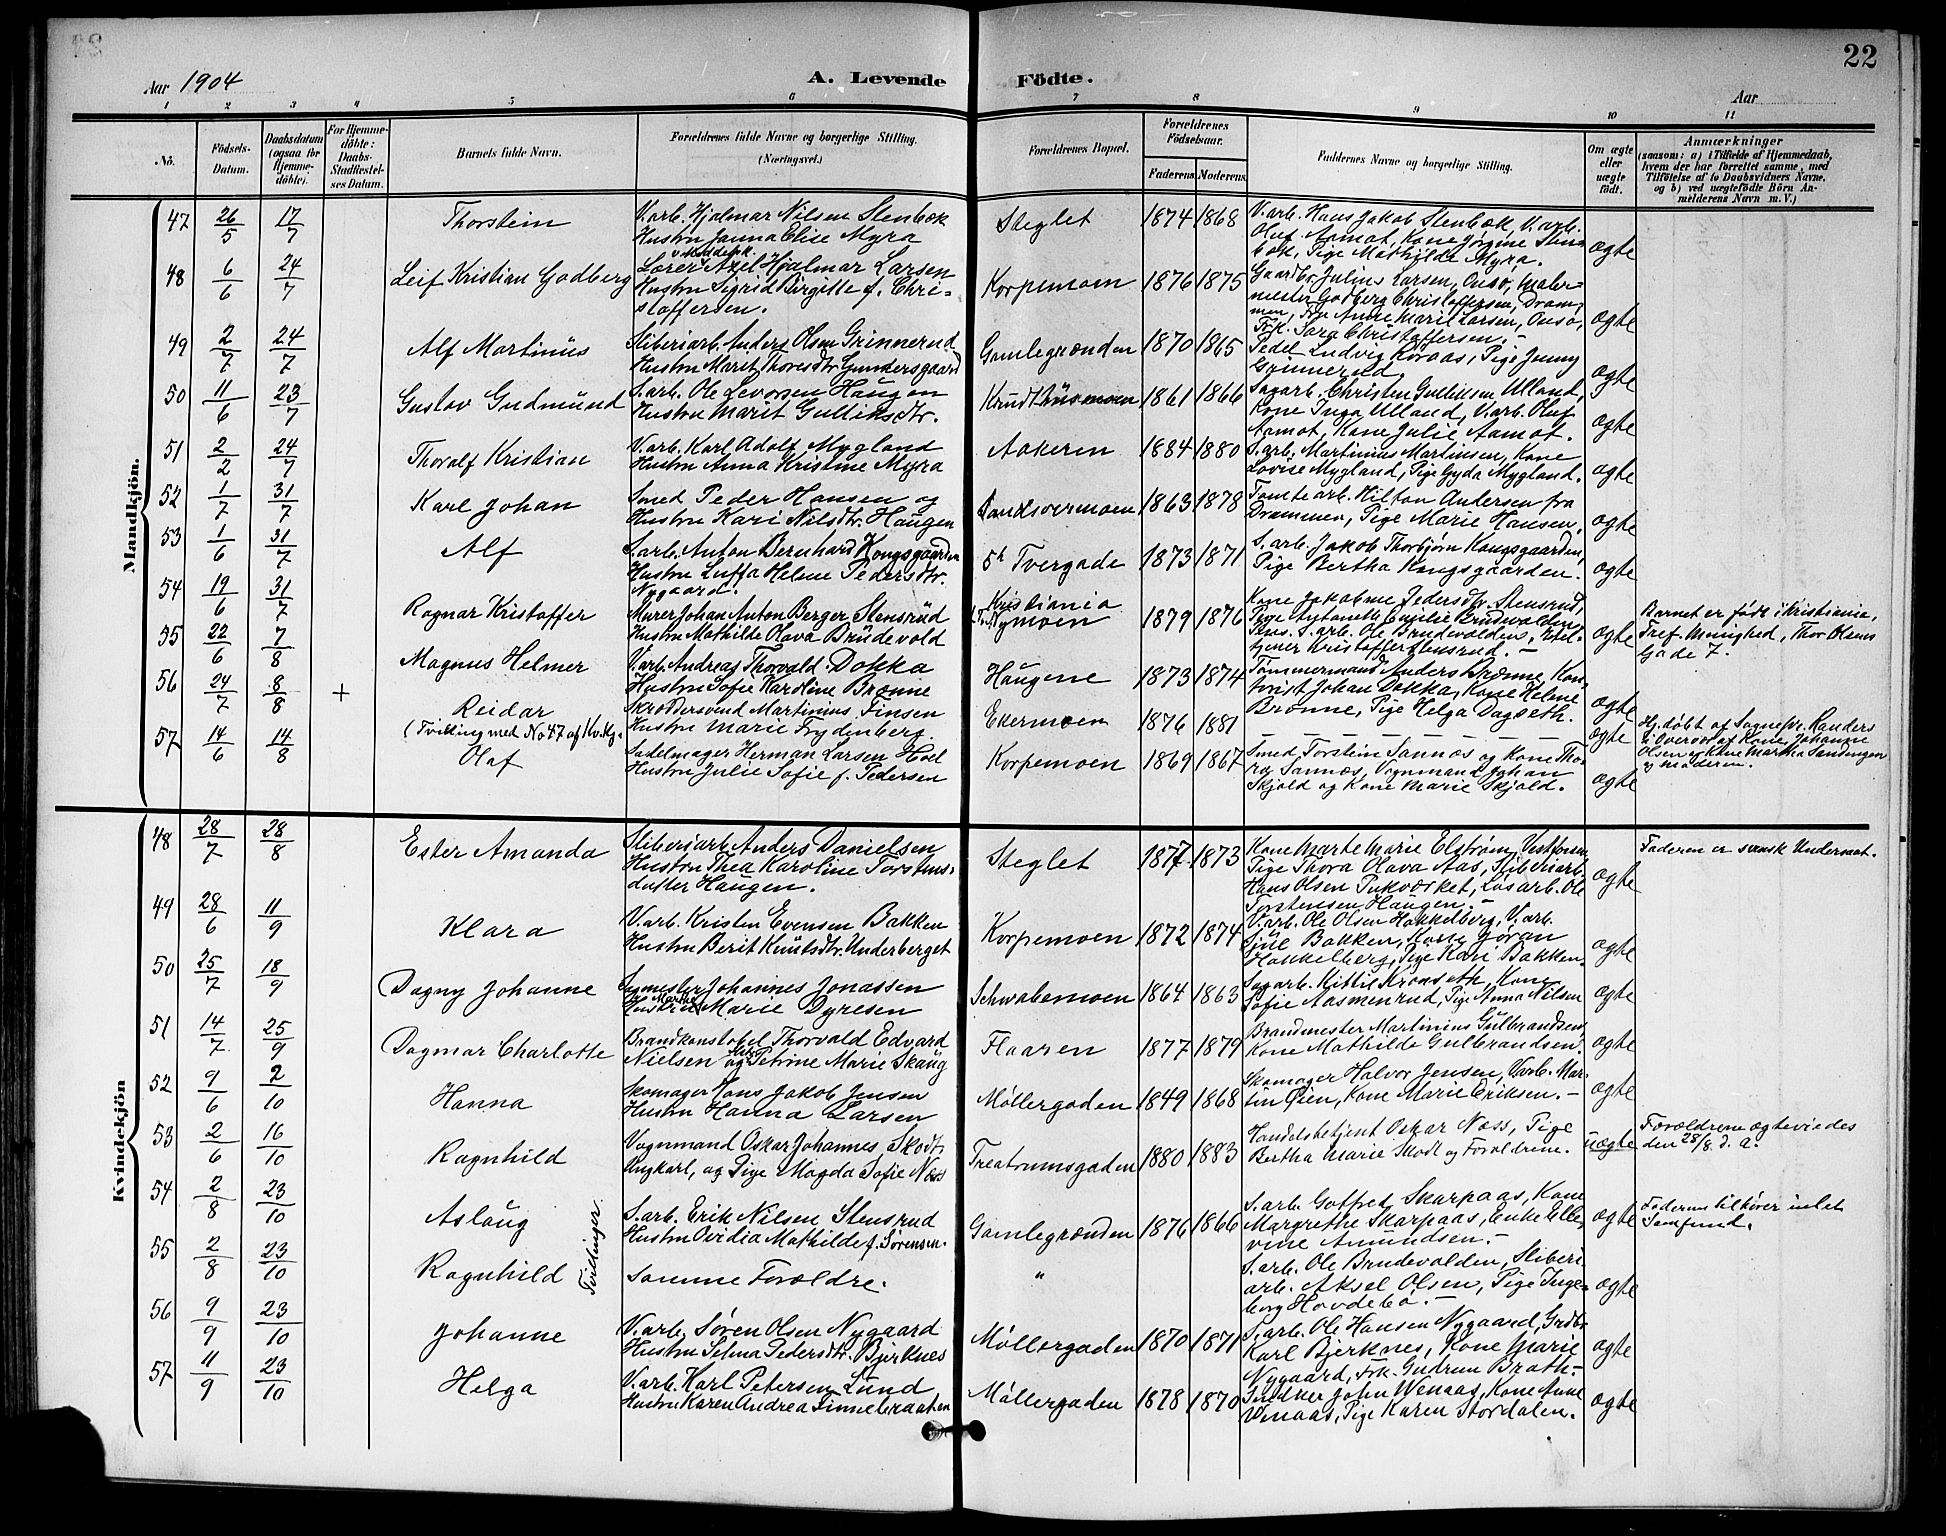 22
Aar 1904
A. Levende Födte.
Aar
1 2 3 4 5 6 7 8 9 10 11
No.
Födsels-Datum.
Daabsdatum (ogsaa for Hjemme-döbte).
For Hjemme-döbte: Daabs-Stadfæstel-ses Datum.
Barnets fulde Navn.
Forældrenes fulde Navne og borgerlige Stilling. (Næringsvei.)
Forældrenes Bopæl.
Forældrenes Födselsaar.
Faderens. Moderens.
Faddernes Navne og borgerlige Stilling.
Om ægte eller uægte født.
Anmærkninger
(saasom: a) i Tilfælde af Hjemmedaab, hvem der har forrettet samme, med Tilföielse af to Daabsvidners Navne, og b) ved uægtefödte Börn An-melderens Navn m. V.)
Mandkjön.
47 26/5 17/7 Thorstein
V.arb. Hjalmar Nilsen Stenbæk
Hustru Janna Elise Myra
Steglet 1874 1868
V.arb. Hans Jakob Stenbæk, V.arb.
Oluf Aamot, Kone Jørgine Sten-
bæk, Pige Mathilde Myra.
ægte
48 6/6 24/7 Leif Kristian Godberg
Lærer Axel Hjalmar Larsen
Hustru Sigrid Birgitte f. Chri-
stoffersen.
Korpemoen 1876 1875
Gaardbr. Julius Larsen, Onsø, Maler-
mester Godberg Christoffersen, Dram-
men, Frk Anne Marie Larsen, Onsø,
Frk. Sara Christoffersen.-
ægte
49 2/7 24/7 Alf Martinus
Sliberiarb. Anders Olsen Grinnerud
Hustru Marit Thoresdtr. Gundersgaard
Gamlegrænden 1870 1865
Pedel Ludvig Koraas, Pige Jenny
ægte
50 11/6 23/7 Gustav Gudmund
S.arb. Ole Levorsen Haugen
Hustru Marit Gulliksdtr.
Krudthusmoen 1861 1866
Sagarb. Christen Gulliksen Ulland,
Kone Inga Ulland, V.arb. Oluf
Aamot, Kone Julie Aamot.
ægte
51 2/2 24/7 Thoralf Kristian
V.arb. Karl Adolf Mygland
Hustru Anna Kristine Myra
Aakeren 1884 1880
S.arb. Martinius Martinsen, Kone
Lovise Mygland, Pige Gyda Mygland.
ægte
52 1/7 31/7 Karl Johan
Smed Peder Hansen og
Hustru Kari Nilsdtr. Haugen
Sandsværmoen 1863 1878
Tomtearb. Hilton Andersen fra
Drammen, Pige Marie Hansen.
ægte
53 1/6 31/7 Alf
S.arb. Anton Bernhard Kongsgaarden
Hustru Luffa Helene Pedersdtr.
Nygaard.
5te Tvergade 1873 1871
S.arb. Jakob Thorbjørn Kongsgaarden,
Pige Bertha Kongsgaarden.
ægte
54 19/6 31/7 Ragnar Kristoffer
Murer Johan Anton Berger Stensrud
Hustru Mathilde Olava Brudevold
Kristiania
Nymoen 1879 1876
Kone Jakobine Pedersdtr. Stensrud,
Pige Antonette Emilie Brudvolden,
Pens. S.arb. Ole Brudevolden,
Kristoffer Stensrud.-
ægte
Barnet er födt i Kristiania,
Tref. Menighed, Thor Olsens
Gade 7.
55 22/6 7/8 Magnus Helmer
V.arb. Andreas Thorvald Dokka
Hustru Sofie Karoline Brønne
Haugene 1873 1874
Tømmermand Anders Brønne, Kon-
torist Johan Dokka, Kone Helene
Brønne, Pige Helga Dagseth.
ægte
56 24/7 8/8 + Reidar
(Tvilling med No 47 af Kv.kj.
Skræddersvend Martinius Finsen
Hustru Marie Frydenberg.
Ekermoen 1876 1881
ægte
Hj. døbt af Sognepr. Randers
i Overvær af Kone Johanne
Olsen og Kone Martha Sandengen
og Moderen.
57 14/6 14/8 Olaf
Sadelmager Herman Larsen Hoel
Hustru Julie Sofie f. Pedersen
Korpemoen 1869 1867
Smed Torstein Sannæs og Kone Tho-
ra Sannæs, Vognmand Johan
Skjold og Kone Marie Skjold.
ægte
Kvindekjön
48 28/7 28/8 Ester Amanda
Sliberiarb. Anders Danielsen
Hustru Thea Karoline Torstens-
datter Haugen.
Steglet 1877 1873
Kone Marte Marie Elstrøm, Vestfossen,
Pige Thora Olava Aas, Sliberiarb.
Hans Olsen Pukværket, Løsarb. Ole
Torstensen Haugen.-
ægte
Faderen er svensk Undersaat.
49 28/6 11/9 Klara
V.arb. Kristen Evensen Bakken
Hustru Berit Knutsdtr. Underberget
Korpemoen 1872 1874
V.arb. Ole Olsen Hakkelberg, V.arb.
Sjul Bakken, Kone Jøran
Hakkelberg, Pige Kari Bakken.
ægte
50 25/7 18/9 Dagny Johanne
Sagmester Johannes Jonassen
Hustru Marthe Marie Dyresen
Schwabemoen 1864 1863
Sagarb. Kittil Kronseth, Kone
Sofie Aasmenrud, Pige Anna Nilsen
ægte
51 14/7 25/9 Dagmar Charlotte
Brandkonstabel Thorvald Edvard
Nielsen og Hustru Petrine Marie Skaug
Flaaren 1877 1879
Brandmester Martinius Gulbrandsen,
Kone Mathilde Gulbrandsen.
ægte
52 9/6 2/10 Hanna
Skomager Hans Jakob Jensen
Hustru Hanna Larsen
Møllergaden 1849 1868
Skomager Halvor Jensen, V.arb. Mar-
tin Øien, Kone Marie Eriksen.-
ægte
53 2/6 16/10 Ragnhild
Vognmand Oskar Johannes Skodt,
Ungkarl, og Pige Magda Sofie Næss
Treatrumsgaden 1880 1883
Handelsbetjent Oskar Næss, Pige
Bertha Marie Skodt og Forældrene.
uægte
Forældrene ægteviedes
den 28/8 d. a.
54 2/8 23/10 Aslaug
Tvillinger
S.arb. Erik Nilsen Stensrud
Hustru Ovidia Mathilde f. Sørensen.
Gamlegrænden 1876 1866
S.arb. Gotfred Skarpaas, Kone
Margrethe Skarpaas, Enke Elle-
vine Amundsen.-
ægte
Faderen tilhører intet
Samfund.
55 2/8 23/10 Ragnhild
Samme Forældre.
"
S.arb. Ole Brudevolden, Sliberi-
arb. Aksel Olsen, Pige Inge-
borg Hovdebø.-
ægte
56 9/9 23/10 Johanne
V.arb. Søren Olsen Nygaard
Hustru Selma Pedersdtr. Bjerknes
Møllergaden 1870 1871
S.arb. Ole Hansen Nygaard, Grdbr.
Karl Bjerknes, Kone Marie
Nygaard, Frk. Gudrun Brath.-
ægte
57 11/9 23/10 Helga
V.arb. Karl Petersen Lund
Hustru Karen Andrea Finnebraaten
Møllergaden 1878 1870
Snedker John Wenaas, Kone Anne
Wenaas, Pige Karen Stordalen.
ægte